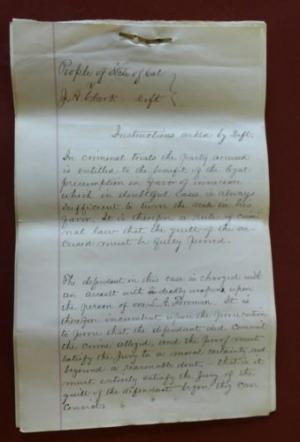 People of State of Cal
v
J. A. Clark Deft
Instructions asked by Deft.
In criminal trials the party accused
is entitled to the benefit of the legal
presumption in favor of innocence
which in doubtful cases is always
sufficient to turn the scale in his
favor. It is therefore a rule of crimi
nal law that the guilt of the ac
cused must be fully proved.
The defendant in this case is charged with
an assault with a deadly weapon upon
the person of one L. A. Foreman. It is
therefore incumbent upon the prosecution
to prove that the defendant did commit
the crime alleged, and the proof must
satisfy the Jury to a moral certainty and
beyond a reasonable dout. that is it
must entirely satisfy the Jury of the
guilt of the defendant before they can
convict